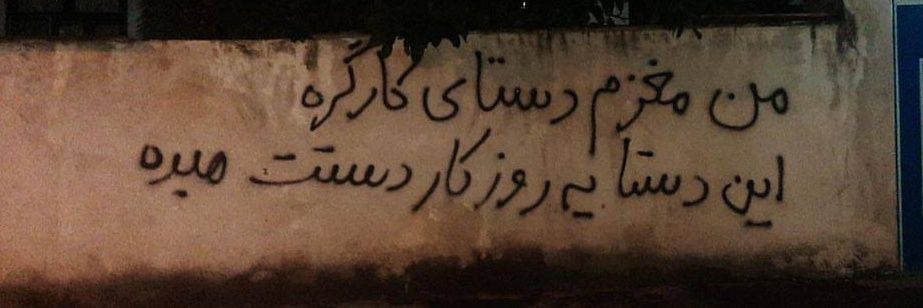 من مغزم دستای کارگره
این دستا یه روز کار دستت میده